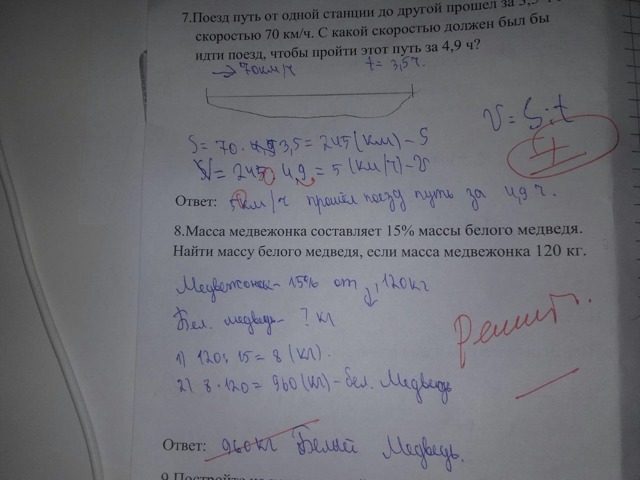 7.Поезд путь от одной станции до другой прошел за 3,5
скоростью 70 км/ч. С какой скоростью должен был бы
идти поезд, чтобы пройти этот путь за 4,9 ч?
70км/ч t = 3,5ч.
V = S:t
S= 70 · 3,5 = 245 (км) – S
V= 245 : 4,9 = 5 (км/ч) – V
Ответ: 5км/ч прошёл поезд путь за 4,9 ч.
8.Масса медвежонка составляет 15% массы белого медведя.
Найти массу белого медведя, если масса медвежонка 120 кг.
Медвежонок – 15% от , 120кг
Бел. медведь – ? кг
Решит.
1) 120 : 15 = 8 (кг).
2) 8 · 120 = 960 (кг) – бел. Медведь
Ответ: 960кг Белый Медведь.